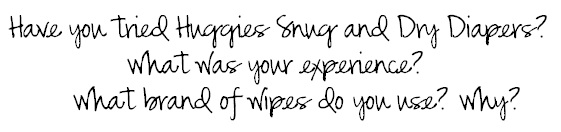 Have you tried Huggies Snug and Dry Diapers?
What was your experience?
What brand of wipes do you use? Why?